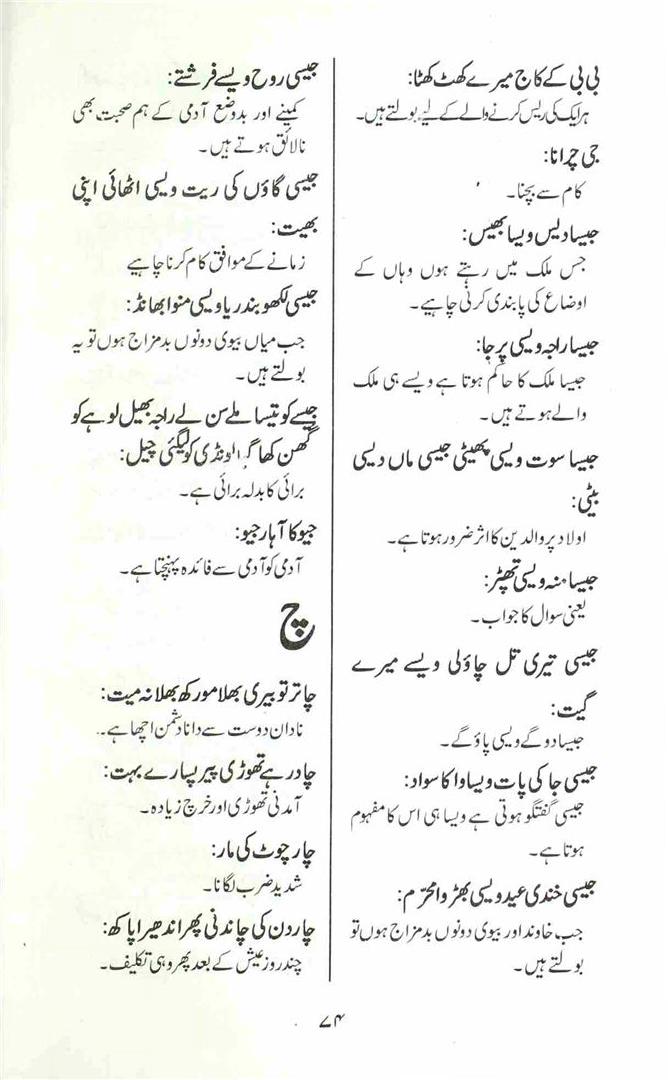 بی بی کے کاج میرے کھٹ کھٹا:
ہر ایک کی ریس کرنے والے کے لیے بولتے ہیں۔
جی چرانا:
کام سے بچنا۔
جیسا دیس ویسا بھیس:
جس ملک میں رہتے ہوں وہاں کے
اوضاع کی پابندی کرنی چاہیے۔
جیسا راجہ ویسی پرجا:
جیسا ملک کا حاکم ہوتا ہے ویسے ہی ملک
والے ہوتے ہیں۔
جیسا سوت ویسی پھیٹی جیسی ماں ویسی
بیٹی:
اولاد پر والدین کا اثر ضرور ہوتا ہے۔
جیسا منہ ویسی تھپڑ:
یعنی سوال کا جواب۔
جیسی تیری تل چاؤلی ویسے میرے
گیت:
جیسا دو گے ویسی پاؤ گے۔
جیسی جا کی پات ویسا وا کا سواد:
جیسی گفتگو ہوتی ہے ویسا ہی اس کا مفہوم
ہوتا ہے۔
جیسی خندی عید ویسی بھڑوا محرّم:
جب خاوند اور بیوی دونوں بدمزاج ہوں تو
بولتے ہیں۔
جیسی روح ویسے فرشتے:
کمینے اور بدوضع آدمی کے ہم صحبت بھی
نالائق ہوتے ہیں۔
جیسی گاؤں کی ریت ویسی اٹھائی اپنی
بھیت:
زمانے کے موافق کام کرنا چاہیے
جیسی لکھو بندریا ویسی منوا بھانڈ:
جب میاں بیوی دونوں بدمزاج ہوں تو یہ
بولتے ہیں۔
جیسے کو تیسا ملے سن لے راجہ بھیل لوہے کو
گھن کھا گیا لونڈی کو لیگئی چیل:
برائی کا بدلہ برائی ہے۔
جیو کا آہار جیو:
آدمی کو آدمی سے فائدہ پہنچتا ہے۔
چ
چاتر تو بیری بھلا مورکھ بھلا نہ میت:
نادان دوست سے دانا دشمن اچھا ہے۔
چادر ہے تھوڑی پیر پسارے بہت:
آمدنی تھوڑی اور خرچ زیادہ۔
چار چوٹ کی مار:
شدید ضرب لگانا۔
چار دن کی چاندنی پھر اندھیرا پاکھ:
چند روز عیش کے بعد پھر وہی تکلیف۔
۷۴